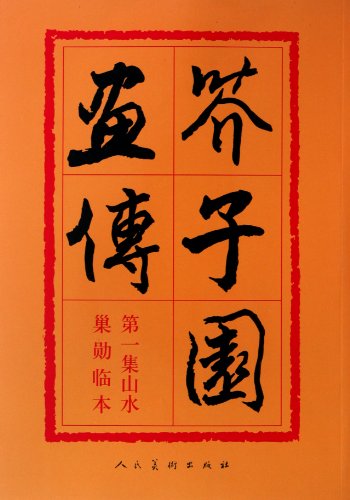 芥子園
畫傳
第一集山水
巢勋临本
人民美術出版社